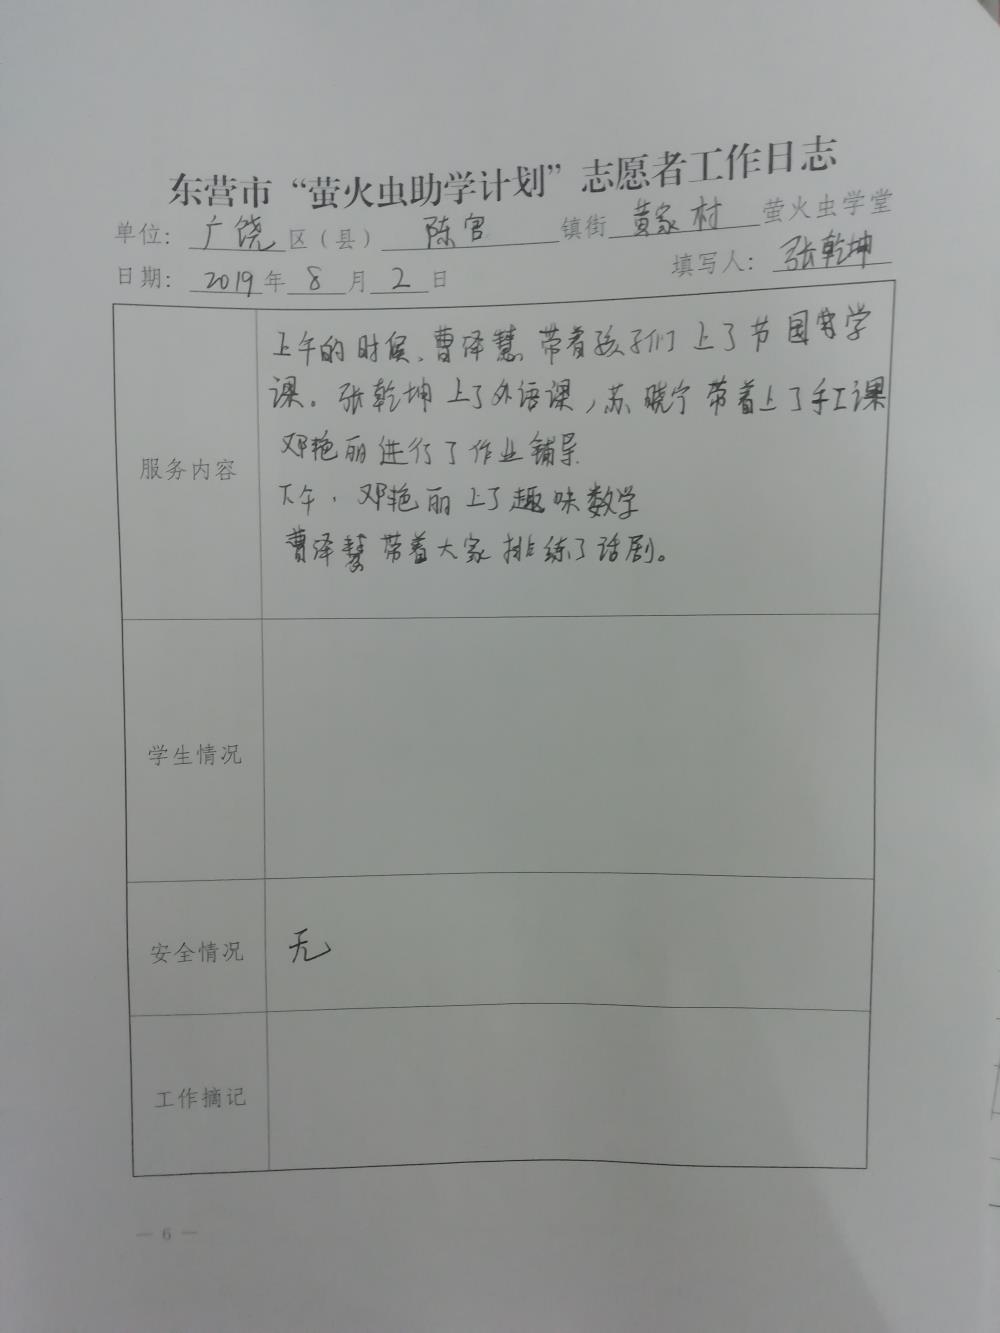 东营市“萤火虫助学计划”志愿者工作日志
单位：广饶区（县）陈官镇街黄家村萤火虫学堂
日期：2019年8月2日 填写人：张乾坤
服务内容
上午的时候、曹泽慧带着孩子们上了节国学
课。张乾坤上了外语课，苏晓宁带着上了手工课
邓艳丽进行了作业辅导
下午，邓艳丽上了趣味数学
曹泽慧带着大家排练了话剧。
学生情况
安全情况 无
工作摘记
— 6 —